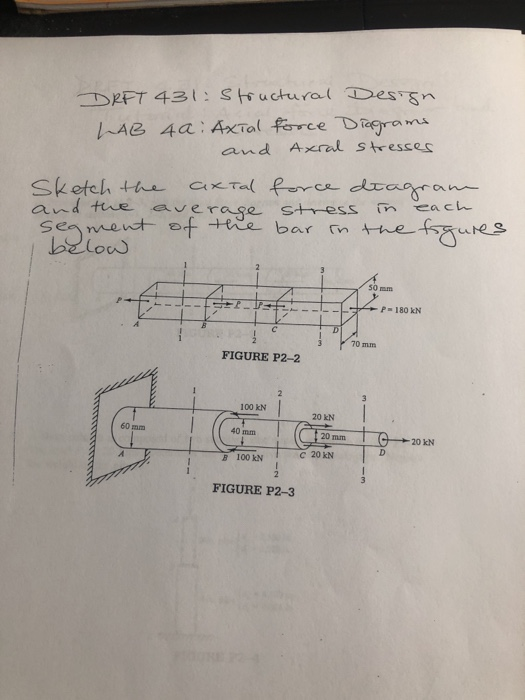 DRFT 431: Structural Design
LAB 4a: Axial force Diagrams
and Axial stresses
Sketch the axial force diagram
and the average stress in each
segment of the bar in the figures
below
1 2 3
50 mm
P P P P = 180 kN
A B C D
1 2 3 70 mm
FIGURE P2-2
1 2 3
100 kN 20 kN
60 mm 40 mm 20 mm 20 kN
A B 100 kN C 20 kN D
1 2 3
FIGURE P2-3